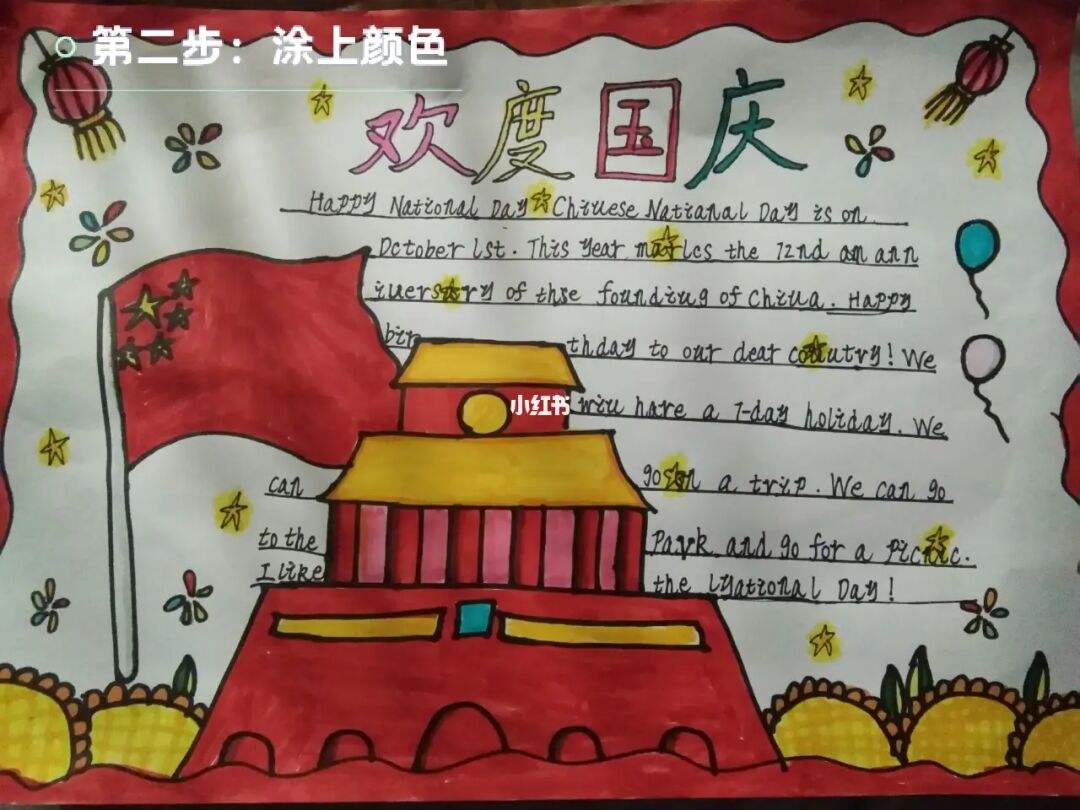 第二步：涂上颜色
欢度国庆
Happy National Day Chiuese National Day is on.
Dctober 1st. This year marlcs the 72nd am ann
iuersary of thse foundiug of Chiua. Happy
bir thday to our dear coututry! We
小红书
wiu have a 7-day holiday. We
can go on a trip. We can go
to the Park and go for a picnic.
I like the Lyational Day!